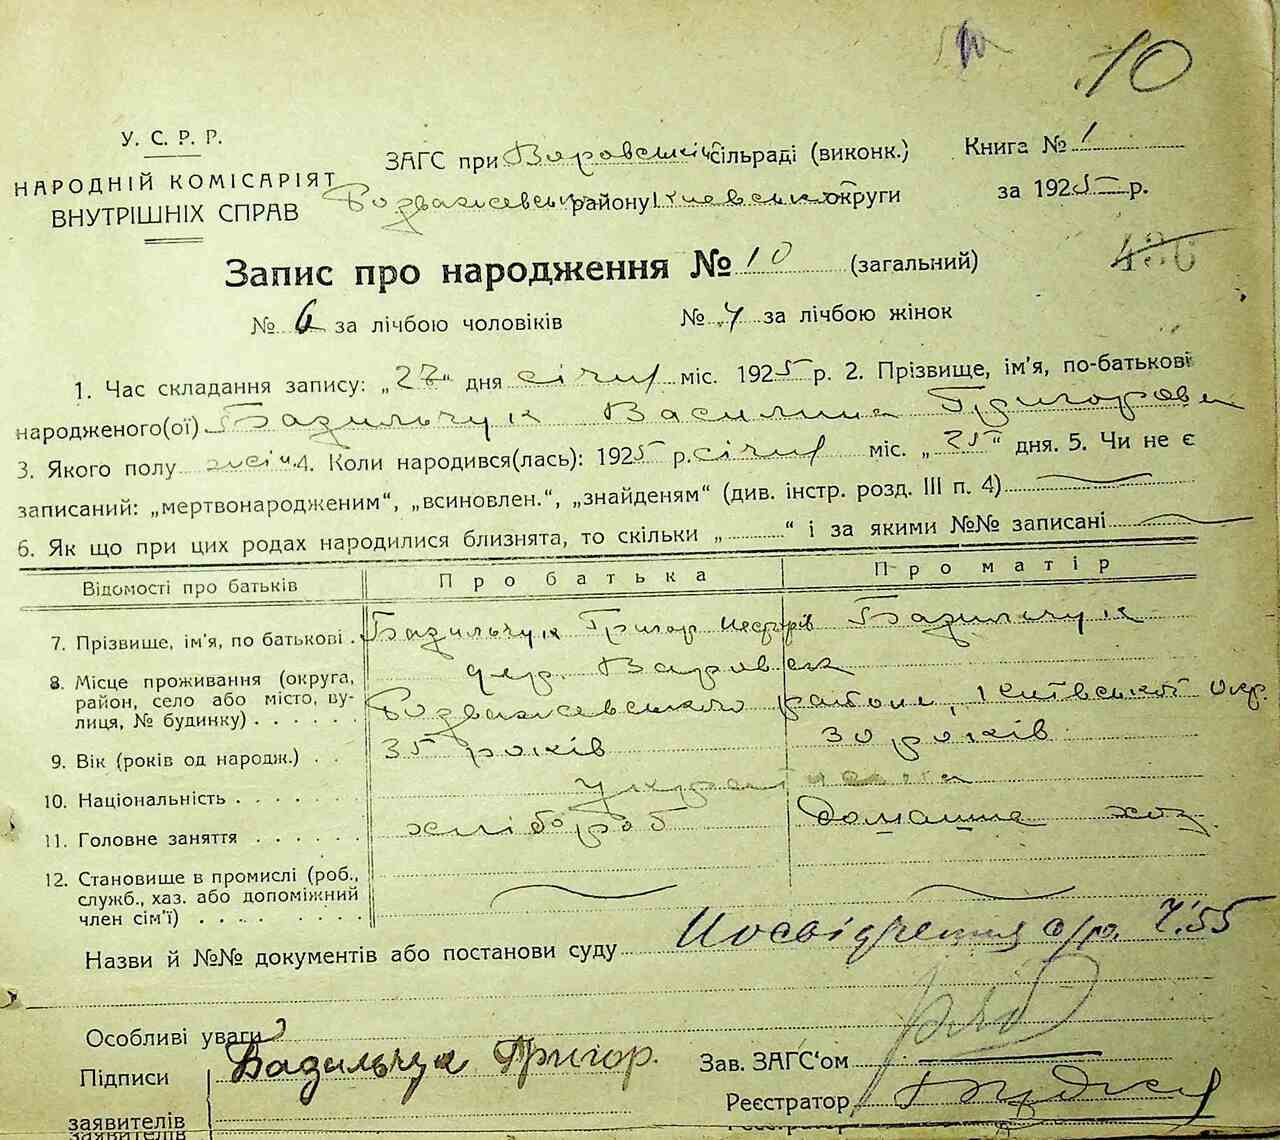 10
У. С. Р. Р.
НАРОДНІЙ КОМІСАРІЯТ
ВНУТРІШНІХ СПРАВ
ЗАГС при Воровській сільраді (виконк.)
Розважевськ району Київської округи
Книга № 1
за 1925 р.
436
Запис про народження № 10 (загальний)
№ 6 за лічбою чоловіків № 4 за лічбою жінок
1. Час складання запису: „27“ дня січня міс. 1925 р. 2. Прізвище, ім'я, по-батькові
народженого(ої) Базильчук Василина Григорова
3. Якого полу жіч. 4. Коли народився(лась): 1925 р. січня міс. „25“ дня. 5. Чи не є
записаний: „мертвонародженим“, „всиновлен.“, „знайденям“ (див. інстр. розд. III п. 4)
6. Як що при цих родах народилися близнята, то скільки „ “ і за якими №№ записані
Відомості про батьків Про батька Про матір
7. Прізвище, ім'я, по батькові Базильчук Григор Базильчук
8. Місце проживання (округа,
район, село або місто, вулиця, № будинку) Розважевського района, Київської окр.
9. Вік (років од народж.) 35 років 30 років
10. Національність
11. Головне заняття хлібороб домашне хоз.
12. Становище в промислі (роб.,
служб., хаз. або допоміжний
член сім'ї)
Назви й №№ документів або постанови суду Посвідчення с/р. Ч. 55
Особливі уваги
Підписи Базильчук Григор. Зав. ЗАГС'ом
заявителів Реєстратор